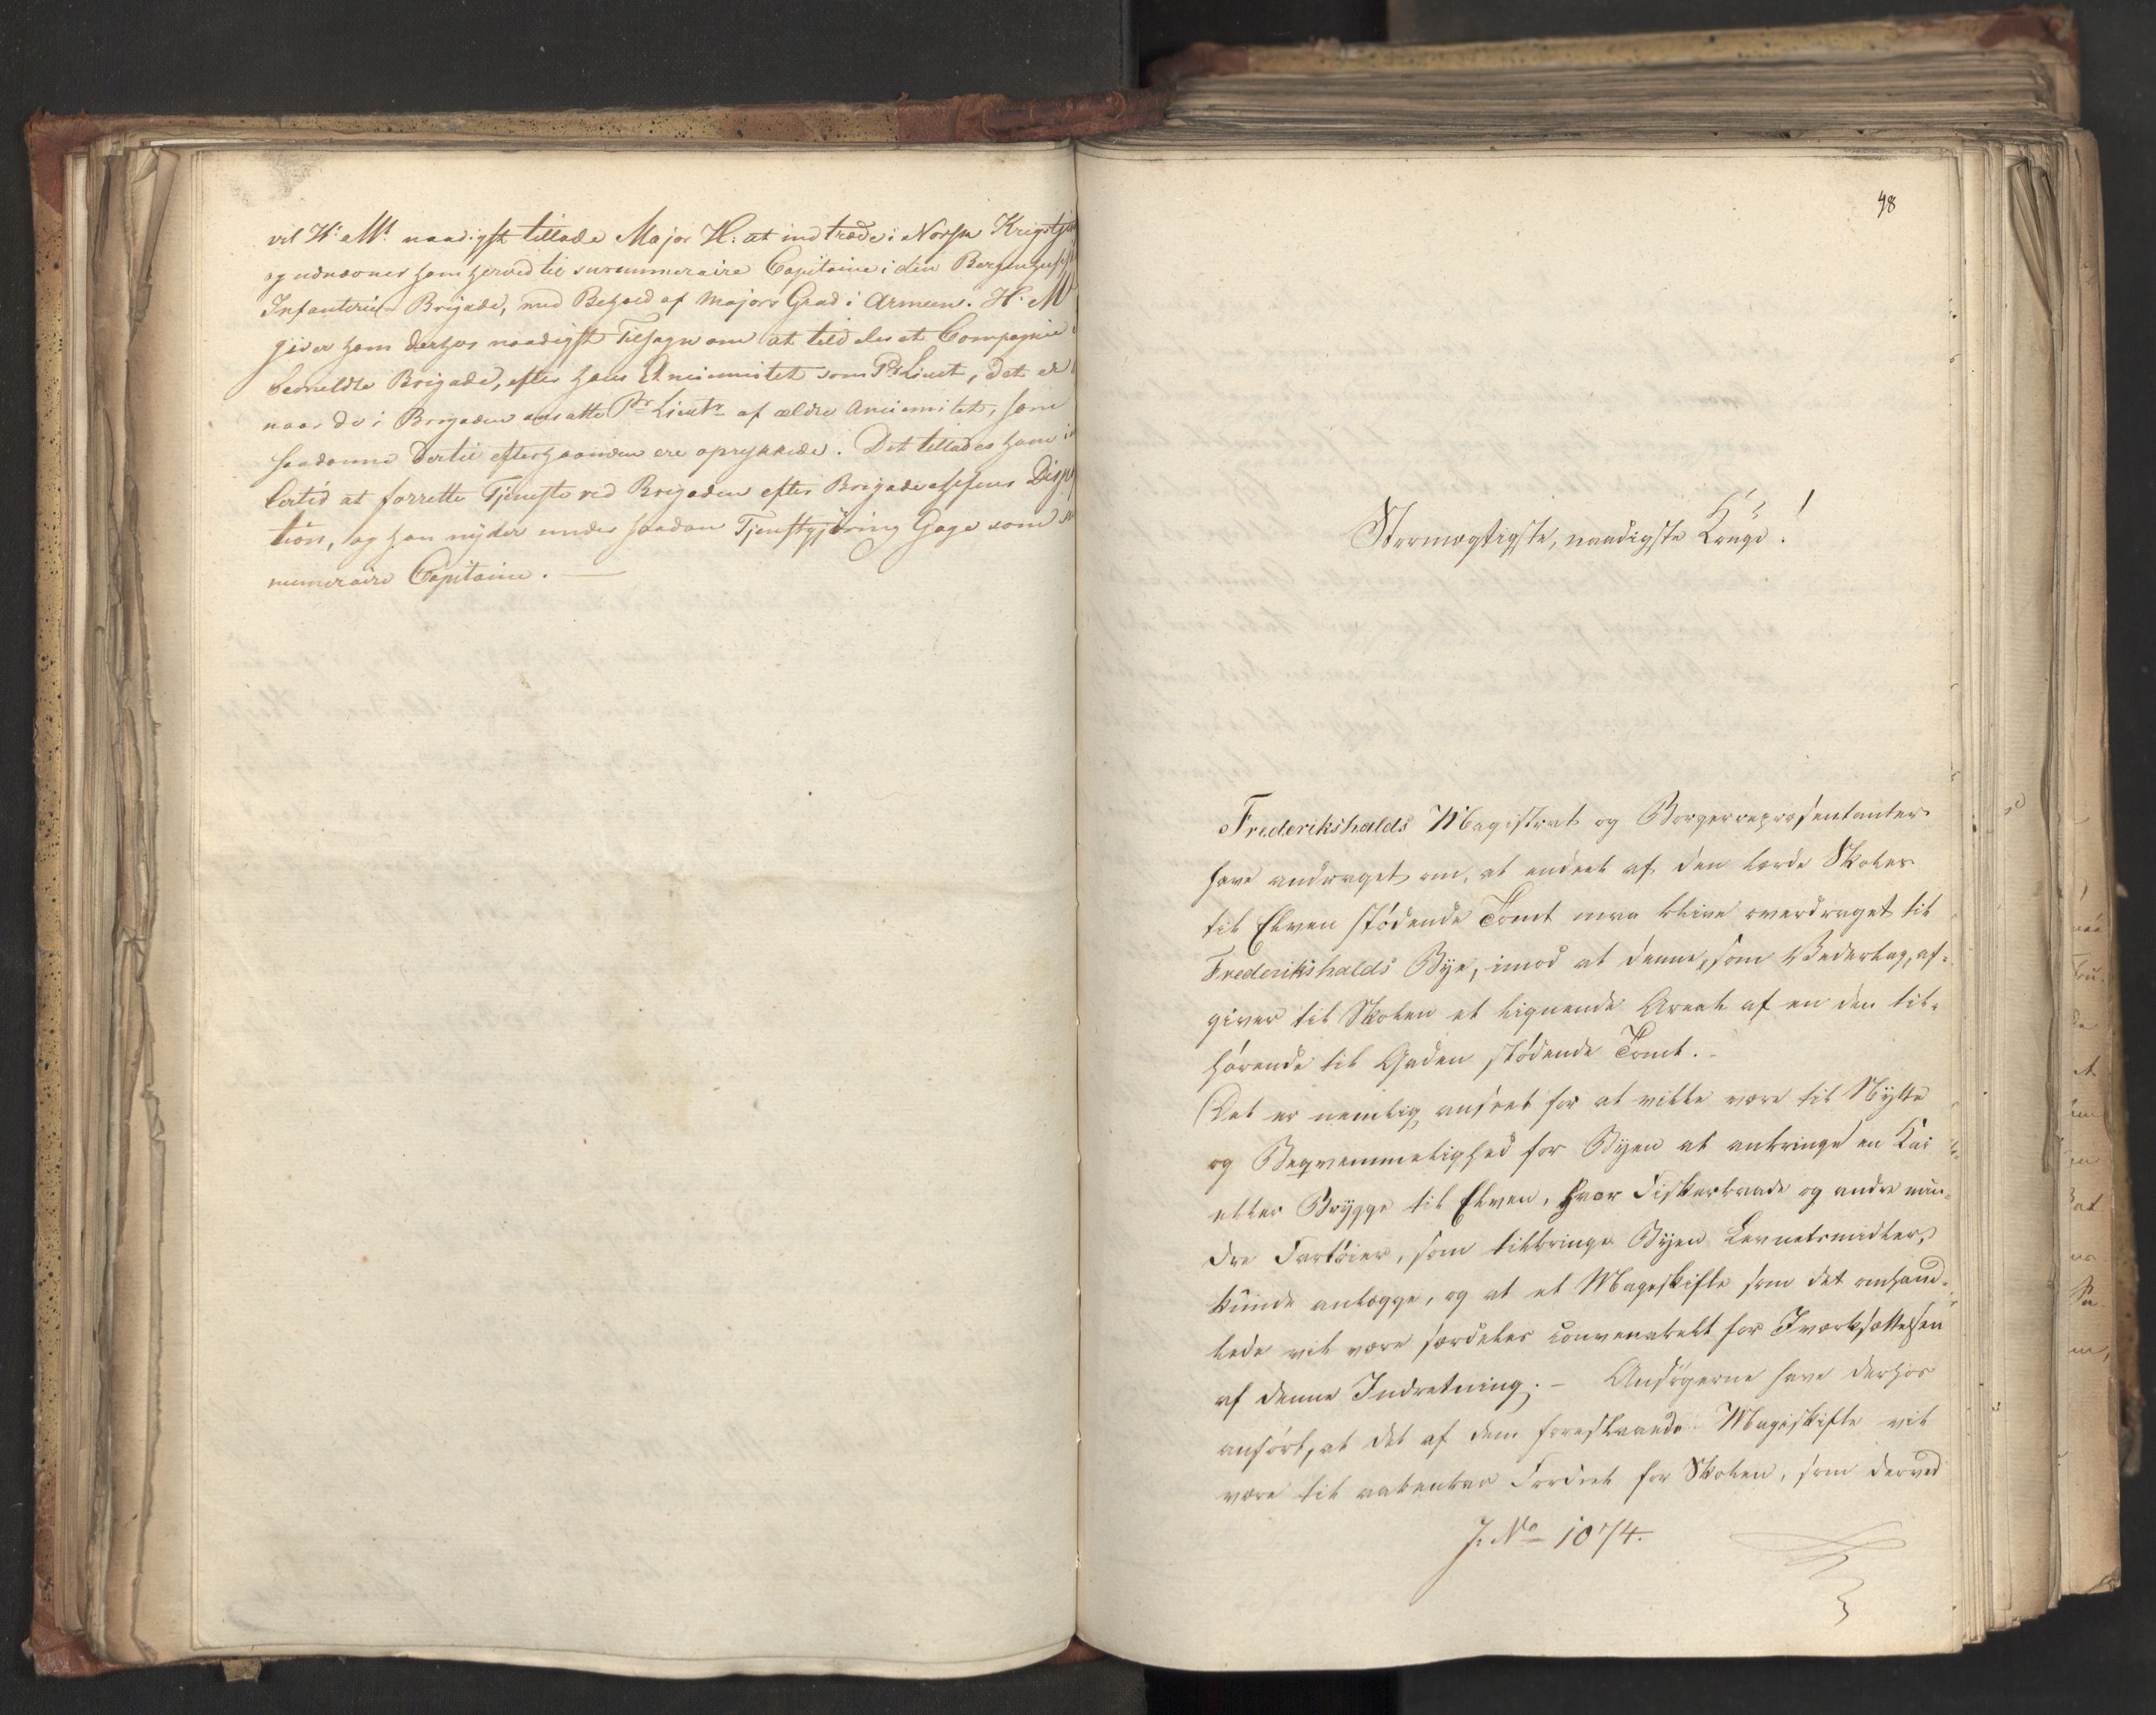 vil H: Mt. naadigst tillade Major H: at indtræde i Norsk Krigstje
og udnævnes ham herved til surnumeraire Capitaine i den Bergenhusisk
Infanterie Brigade, med Behold af Majors Grad i Armeen. H: Mt
giver ham derhos naadigst Tilsagn om at tildeles et Compagnie
bemeldte Brigade, efter hans Anciennitet som Pr Lieut, det er
naar de i Brigaden ansatte Pr Lieutr af ældre Anciennitet, som
saadanne dertil efterhaanden ere oprykkede. Det tillades ham i
lertid at forrette Tjeneste ved Brigaden efter Brigadechefens Dispo
tion, og han nyder under saadan Tjenstgjöring Gage som
numeraire Capitaine. —
48
Stormægtigste, naadigste Konge!
Frederikshalds Magistrat og Borgerrepræsentanter
have andraget om, at endeel af den lærde Skoles
til Elven stödende Tomt maa blive overdraget til
Frederikshalds Bye, imod at denne, som Vederlag, af-
giver til Skolen et lignende Areal af en den til-
hörende til Gaden stödende Tomt. -
Det er nemlig anseet for at ville være til Nytte
og Beqvemmelighed for Byen at anbringe en Kai
eller Brygge til Elven, hvor Fiskerbaade og andre min-
dre Fartöier, som tilbringe Byen Levnetsmidler,
kunde anlægge, og at et Mageskifte som det omhand-
lede vil være særdeles convenabelt for Iværksættelsen
af denne Indretning. - Ansögerne have derhos
anfört, at det af dem foreslaaede Mageskifte vil
være til aabenbar Fordeel for Skolen, som derved
J. No 1074.